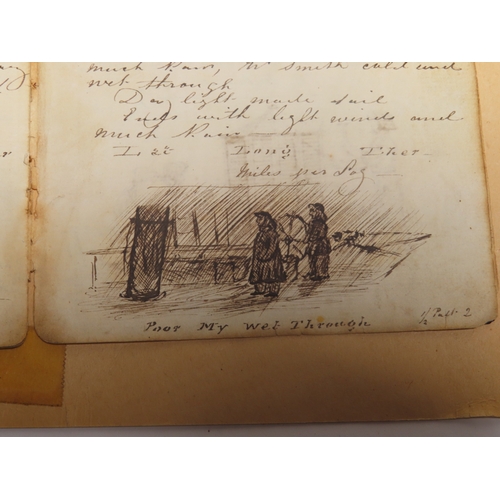 much Rain, Mr Smith cold and
wet through
Day light made Sail
Ends with light winds and
much Rain
Lat Long Ther
Miles per Log
Poor My Wet Through
1/2 Past 2